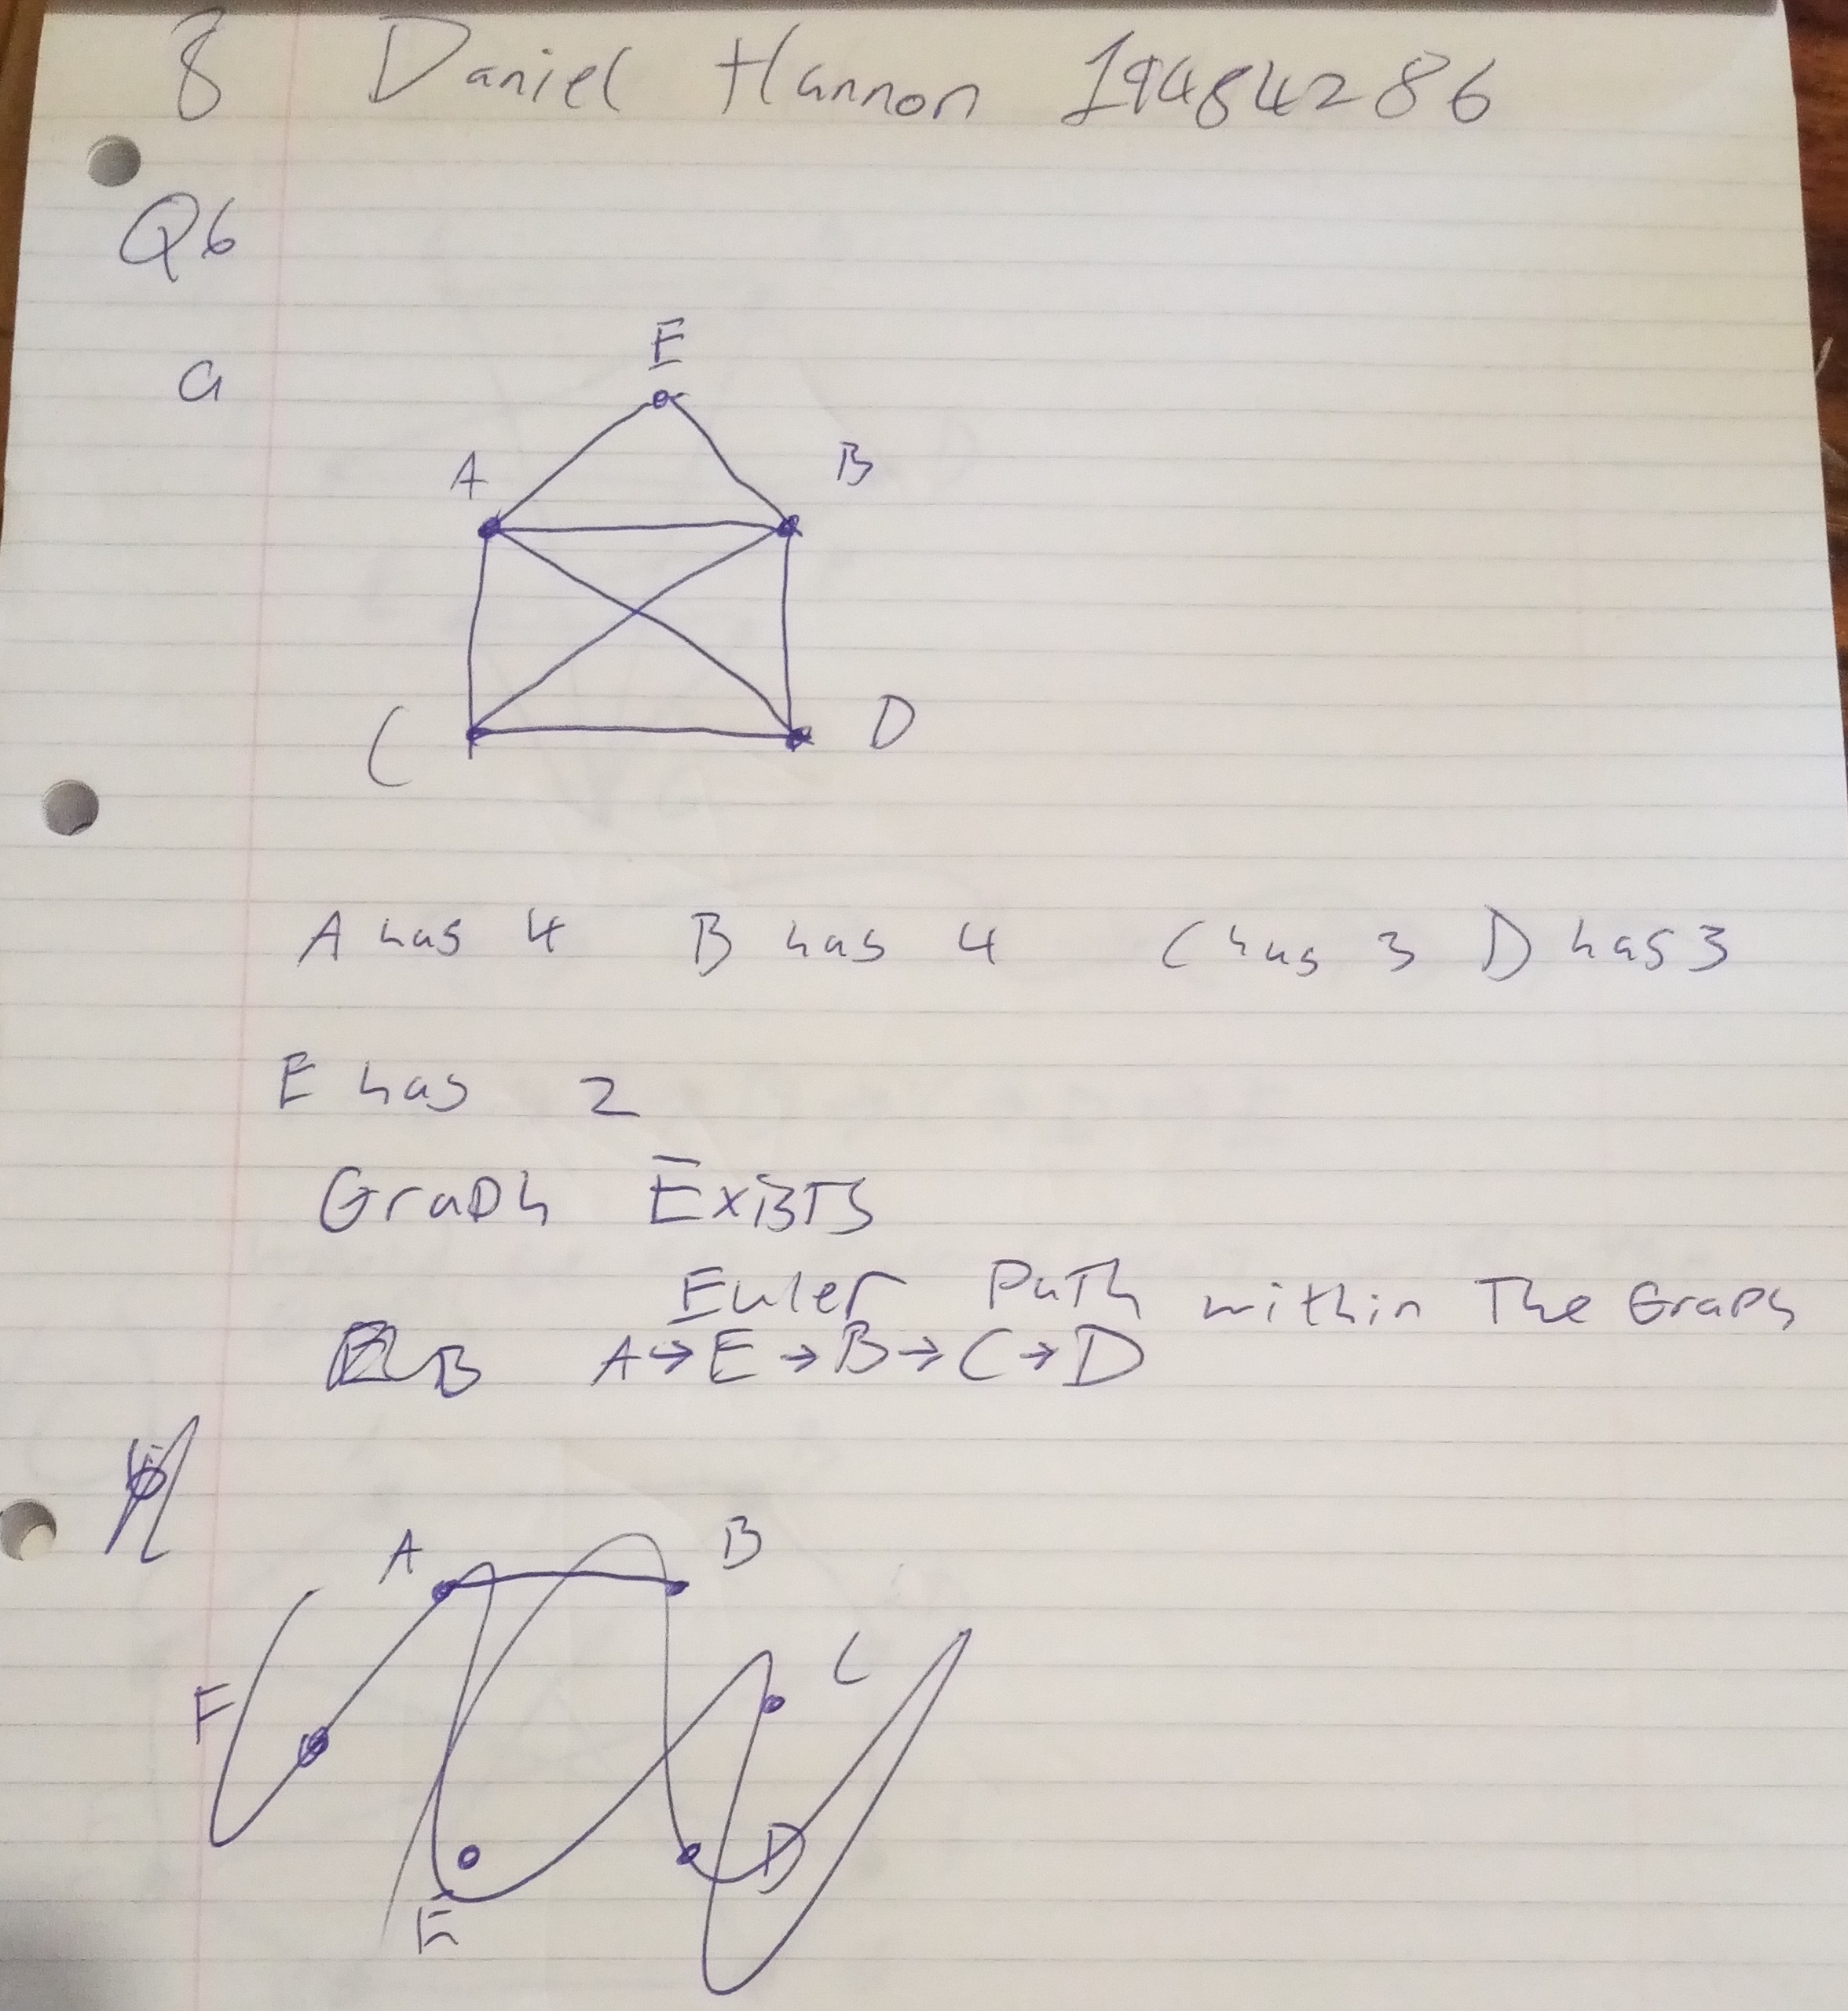 8 Daniel Hannon 19484286
Q6
a
E
A B
C D
A has 4 B has 4 C has 3 D has 3
E has 2
Graph Exists
Euler Path within The Graph
B A→E→B→C→D
A B
C
F
D
E